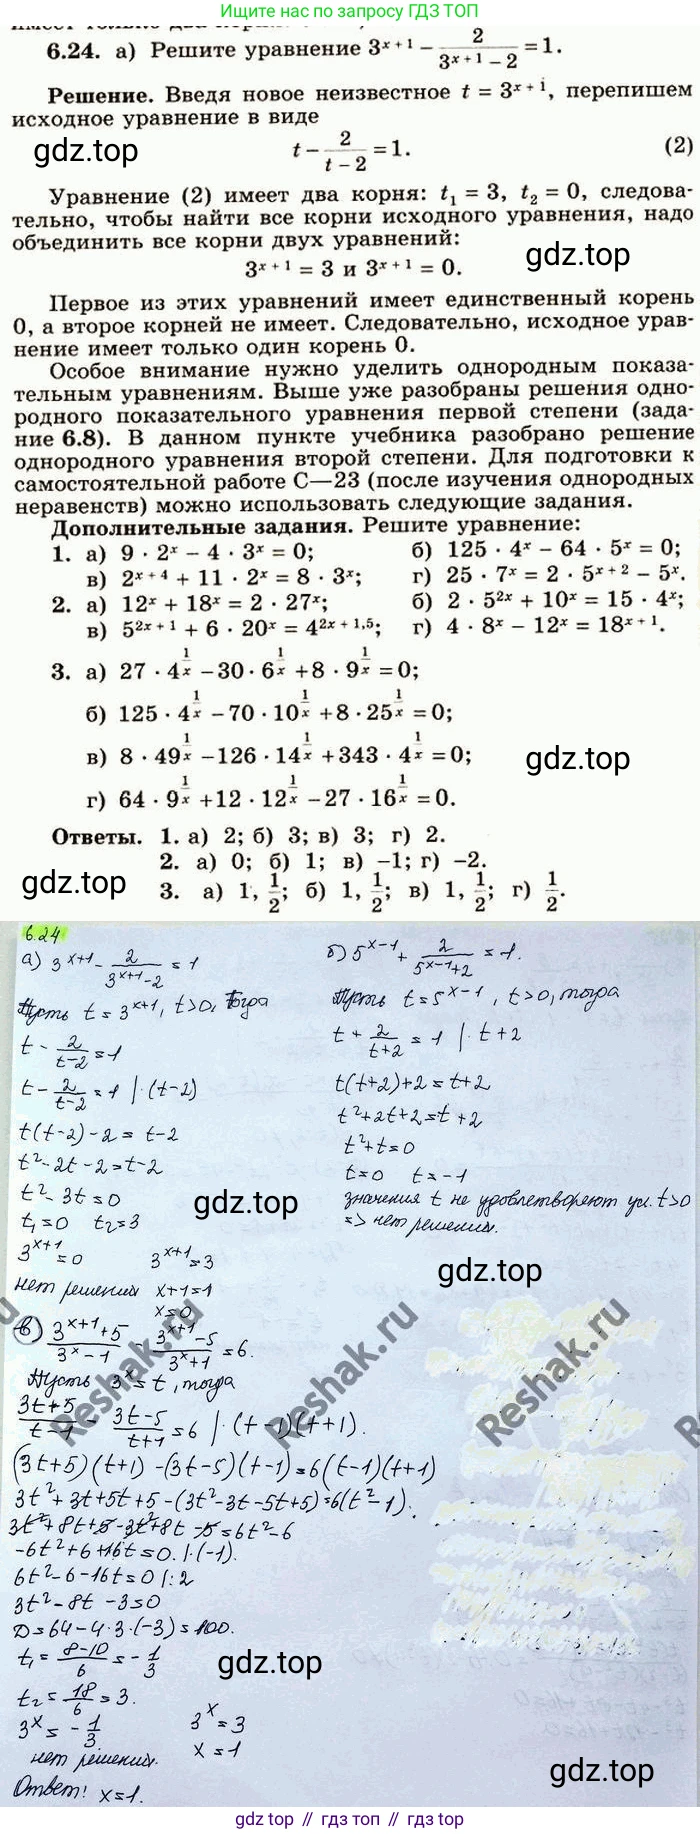 Ищите нас в поиске по запросу ГДЗ ТОП
6.24. а) Решите уравнение 3^{x + 1} − \frac{2}{3^{x + 1} − 2} = 1.
Решение. Введя новое неизвестное t = 3^{x + 1}, перепишем
исходное уравнение в виде
gdz.top
t − \frac{2}{t − 2} = 1. (2)
Уравнение (2) имеет два корня: t₁ = 3, t₂ = 0, следова-
тельно, чтобы найти все корни исходного уравнения, надо
объединить все корни двух уравнений:
gdz.top
3^{x + 1} = 3 и 3^{x + 1} = 0.
Первое из этих уравнений имеет единственный корень
0, а второе корней не имеет. Следовательно, исходное урав-
нение имеет только один корень 0.
Особое внимание нужно уделить однородным показа-
тельным уравнениям. Выше уже разобраны решения одно-
родного показательного уравнения первой степени (зада-
ние 6.8). В данном пункте учебника разобрано решение
однородного уравнения второй степени. Для подготовки к
самостоятельной работе С—23 (после изучения однородных
неравенств) можно использовать следующие задания.
Дополнительные задания. Решите уравнение:
1. а) 9 · 2^x − 4 · 3^x = 0; б) 125 · 4^x − 64 · 5^x = 0;
в) 2^{x + 4} + 11 · 2^x = 8 · 3^x; г) 25 · 7^x = 2 · 5^{x + 2} − 5^x.
2. а) 12^x + 18^x = 2 · 27^x; б) 2 · 5^{2x} + 10^x = 15 · 4^x;
в) 5^{2x + 1} + 6 · 20^x = 4^{2x + 1,5}; г) 4 · 8^x − 12^x = 18^{x + 1}.
3. а) 27 · 4^{\frac{1}{x}} − 30 · 6^{\frac{1}{x}} + 8 · 9^{\frac{1}{x}} = 0;
б) 125 · 4^{\frac{1}{x}} − 70 · 10^{\frac{1}{x}} + 8 · 25^{\frac{1}{x}} = 0;
в) 8 · 49^{\frac{1}{x}} − 126 · 14^{\frac{1}{x}} + 343 · 4^{\frac{1}{x}} = 0;
gdz.top
г) 64 · 9^{\frac{1}{x}} + 12 · 12^{\frac{1}{x}} − 27 · 16^{\frac{1}{x}} = 0.
Ответы. 1. а) 2; б) 3; в) 3; г) 2.
2. а) 0; б) 1; в) −1; г) −2.
gdz.top
3. а) 1, \frac{1}{2}; б) 1, \frac{1}{2}; в) 1, \frac{1}{2}; г) \frac{1}{2}.
6.24
а) 3^{x+1} - \frac{2}{3^{x+1}-2} = 1
Пусть t = 3^{x+1}, t>0, Тогда
t - \frac{2}{t-2} = 1
t - \frac{2}{t-2} = 1 |·(t-2)
t(t-2) - 2 = t-2
t² - 2t - 2 = t-2
t² - 3t = 0
t₁=0 t₂=3
3^{x+1} = 0 3^{x+1} = 3
нет решений x+1=1
x=0
gdz.top
б) 5^{x-1} + \frac{2}{5^{x-1}+2} = 1.
Пусть t = 5^{x-1}, t>0, тогда
t + \frac{2}{t+2} = 1 |· t+2
t(t+2)+2 = t+2
t²+2t+2 = t+2
t²+t=0
t=0 t=-1
значения t не удовлетворяют ус. t>0
=> нет решений.
gdz.top
в) \frac{3^{x+1}+5}{3^x-1} \frac{3^{x+1}-5}{3^x+1} = 6.
Пусть 3^x = t, тогда
\frac{3t+5}{t-1} - \frac{3t-5}{t+1} = 6 |·(t-1)(t+1).
(3t+5)(t+1) - (3t-5)(t-1) = 6(t-1)(t+1)
3t²+3t+5t+5-(3t²-3t-5t+5) = 6(t²-1).
3t²+8t+5-3t²+8t-5 = 6t²-6
-6t²+6+16t = 0. |·(-1).
6t²-6-16t = 0 |:2
3t²-8t-3=0
D = 64-4·3·(-3) = 100.
t₁ = \frac{8-10}{6} = -\frac{1}{3}
gdz.top
t₂ = \frac{18}{6} = 3.
3^x = -\frac{1}{3} 3^x = 3
нет решений. x = 1
Ответ: x=1.
gdz.top
Reshak.ru
Reshak.ru
Reshak.ru
gdz.top // гдз топ // gdz.top // гдз топ